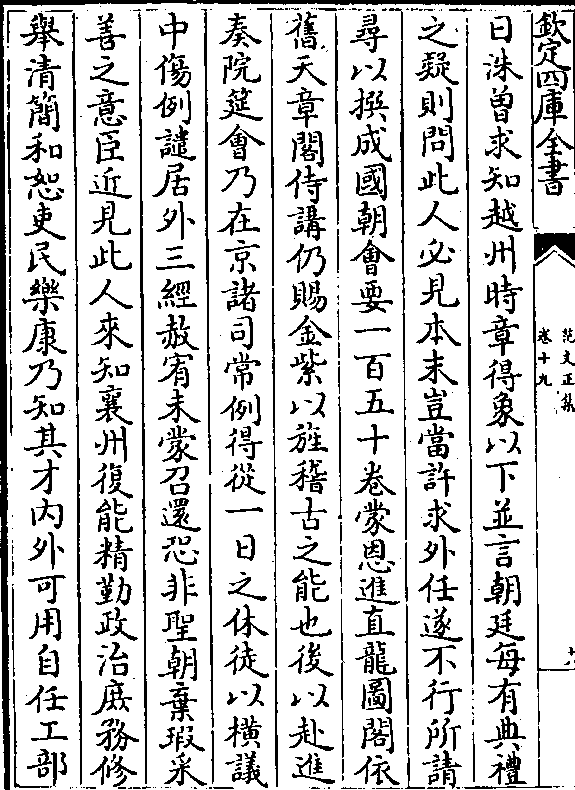 欽定四庫全書
范文正集
卷十九
十八
日洙曽求知越州時章得象以下並言朝廷每有典禮
之疑則問此人必見本末豈當許求外任遂不行所請
尋以撰成國朝會要一百五十卷蒙恩進直龍圖閣依
舊天章閣侍講仍賜金紫以旌稽古之能也後以赴進
奏院筵會乃在京諸司常例得從一日之休徒以横議
中傷例譴居外三經赦宥未蒙召還恐非聖朝棄瑕采
善之意臣近見此人來知襄州復能精勤政治庶務修
舉清簡和恕吏民樂康乃知其才内外可用自任工部